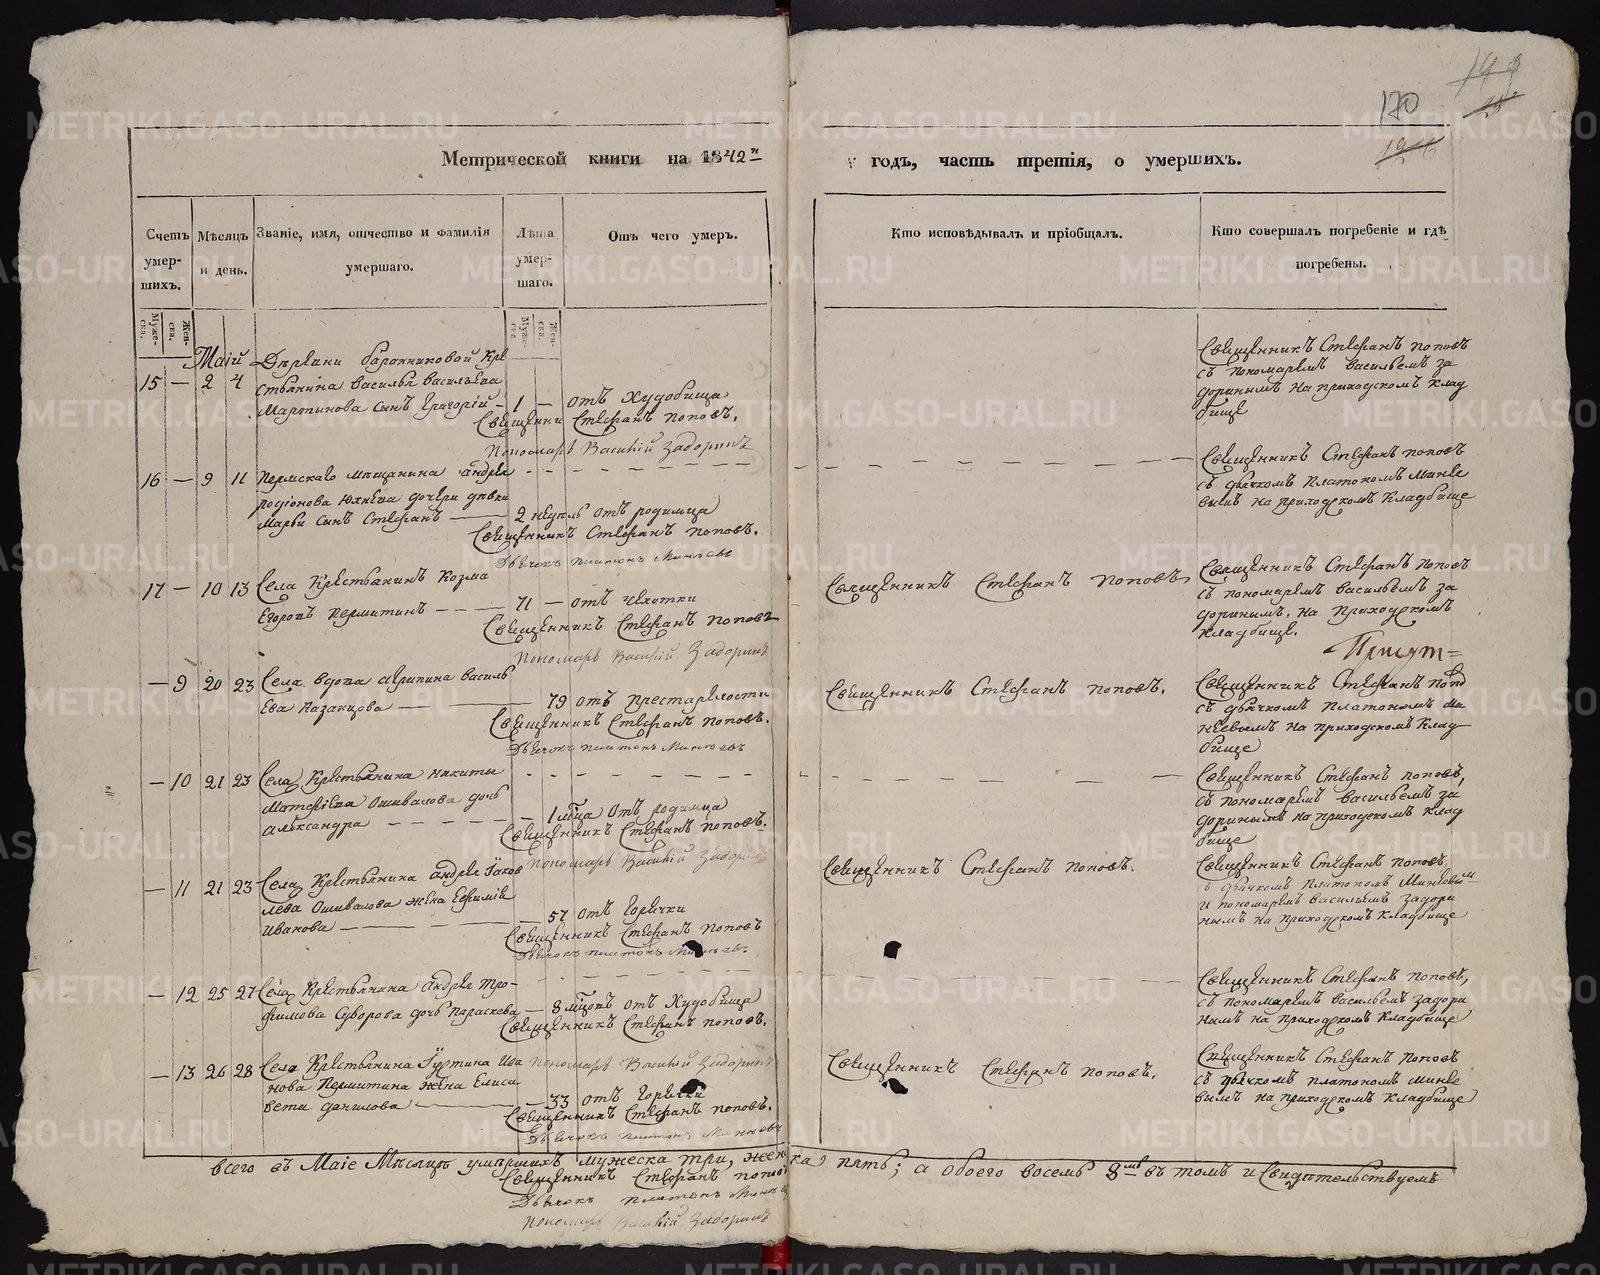 149
25
170
196
Метрической книги на 1842й годъ, часть третія, о умершихъ.
Счетъ умер-шихъ.
Муже-ска.
Жен-ска.
Мѣсяцъ и день.
Званіе, имя, отчество и фамилія
умершаго.
Лѣта умер-шаго.
Муже-ска.
Жен-ска.
Отъ чего умеръ.
Кто исповѣдывалъ и пріобщалъ.
Кто совершалъ погребеніе и гдѣ
погребены.
Маій Деревни Боронниковой Кре
15 — 2 4 стьянина Василья Васильева
Мартинова сынъ Григорій — 1 — отъ Худобища
Священникъ Стефанъ Поповъ.
Пономарь Василій Задоринъ
Священникъ Стефанъ Поповъ
съ пономаремъ Васильемъ За
доринымъ на приходскомъ клад
бище
16 — 9 11 Пермскаго мѣщанина Андрея
Родіонова Юхнева дочери дѣвки
Марьи сынъ Стефанъ — 2 недель отъ родимца
Священникъ Стефанъ Поповъ.
Дьячокъ Платонъ Минѣевъ
Священникъ Стефанъ Поповъ
съ дьячкомъ Платономъ Мине
вымъ на приходскомъ кладбище
17 — 10 13 Села Крестьянинъ Козма
Егоровъ Пермитинъ — 71 — отъ чехотки
Священникъ Стефанъ Поповъ
Пономарь Василій Задоринъ
Священникъ Стефанъ Поповъ
Священникъ Стефанъ Поповъ
съ пономаремъ Васильемъ За
доринымъ. на приходскомъ
кладбище.
— 9 20 23 Села вдова Агрипина Василь
ева Казанцова — 79 отъ престарелости
Священникъ Стефанъ Поповъ.
Дьячокъ Платонъ Минѣевъ
Священникъ Стефанъ Поповъ.
Священникъ Стефанъ Попов
съ дьячкомъ Платономъ Ми
неевымъ на приходскомъ клад
бище
— 10 21 23 Села Крестьянина Никиты
Матфіева Ошивалова дочь
Александра — 1 мѣца отъ родимца
Священникъ Стефанъ Поповъ.
Пономарь Василій Задоринъ
Священникъ Стефанъ Поповъ,
съ пономаремъ Васильемъ За
доринымъ на приходскомъ клад
бище
— 11 21 23 Села Крестьянина Андрея Іаков
лева Ошивалова жена Евфимія
Иванова — 57 отъ Горячки
Священникъ Стефанъ Поповъ
Дьячокъ Платонъ Минѣевъ.
Священникъ Стефанъ Поповъ.
Священникъ Стефанъ Поповъ,
съ дьячкомъ Платономъ Миневым
и пономаремъ Васильемъ Задори
нымъ на приходскомъ кладбище
— 12 25 27 Села Крестьянина Андрея Тро-
фимова Суворова дочь Параскева — 8 мѣцовъ отъ Худобища
Священникъ Стефанъ Поповъ.
Пономарь Василій Задоринъ
Священникъ Стефанъ Поповъ,
съ пономаремъ Васильемъ Задори
нымъ на приходскомъ кладбище
— 13 26 28 Села Крестьянина Іустина Ива
нова Пермитина жена Елиса
вета Данилова — 33 отъ Горячки
Священникъ Стефанъ Поповъ.
Дьячокъ Платонъ Минѣевъ
Священникъ Стефанъ Поповъ.
Священникъ Стефанъ Поповъ
съ дьячкомъ Платономъ Мине
вымъ на приходскомъ кладбище
всего въ Маіе Мѣсяце умершихъ мужеска три, женска пять; а обоего восемь 8мь въ томъ и Свидѣтельствуемъ
Священникъ Стефанъ Поповъ
Дьячокъ Платонъ Минѣев
Пономарь Василій Задоринъ
METRIKI.GASO-URAL.RU